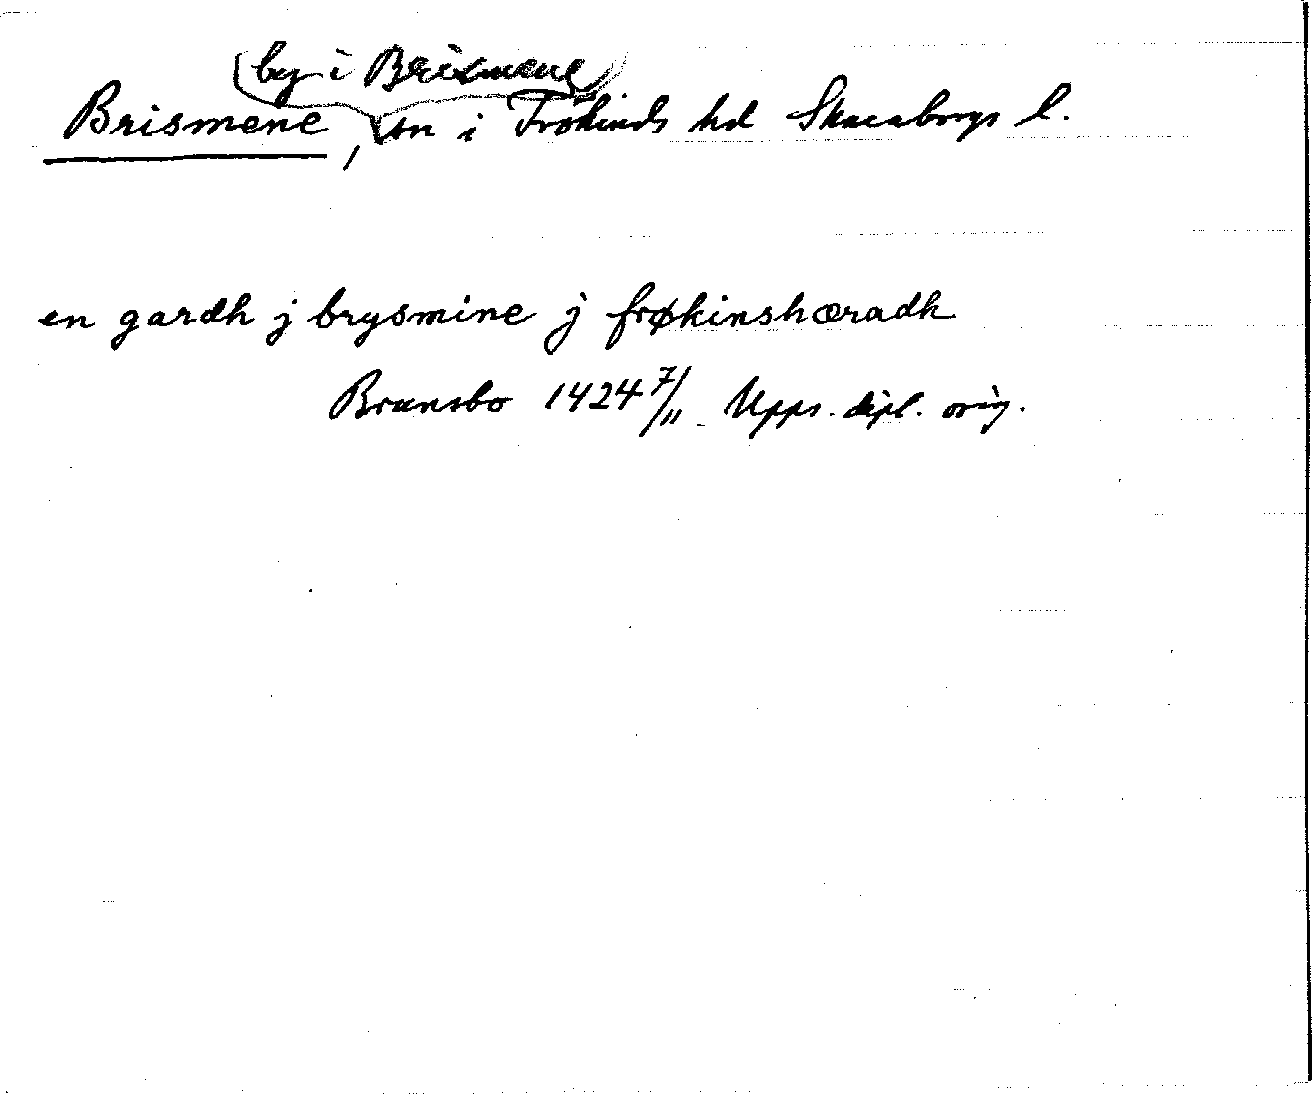 by i Brismene
Brismene, sn i Frökinds hd Skaraborgs l.
en gardh j brysmine j frøkinshæradh
Brunsbo 1424 7/11 Upps. dipl. orig.